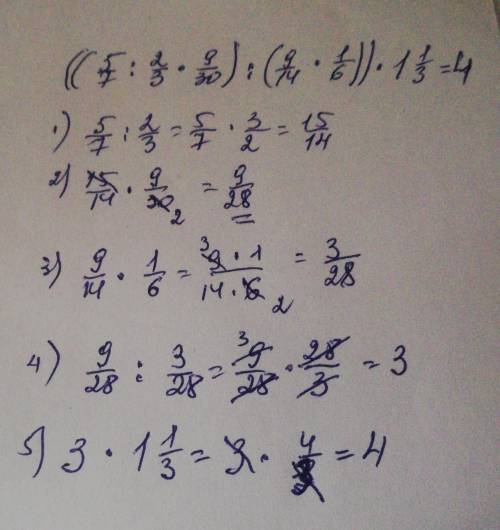 ((5/7 : 2/3 · 9/30) : (9/14 · 1/6)) · 1 1/3 = 4
1) 5/7 : 2/3 = 5/7 · 3/2 = 15/14
2) 15/14 · 9/30 2 = 9/28
3) 9/14 · 1/6 = 3 9 · 1/14 · 6 2 = 3/28
4) 9/28 : 3/28 = 3 9/28 · 28/3 = 3
5) 3 · 1 1/3 = 3 · 4/3 = 4